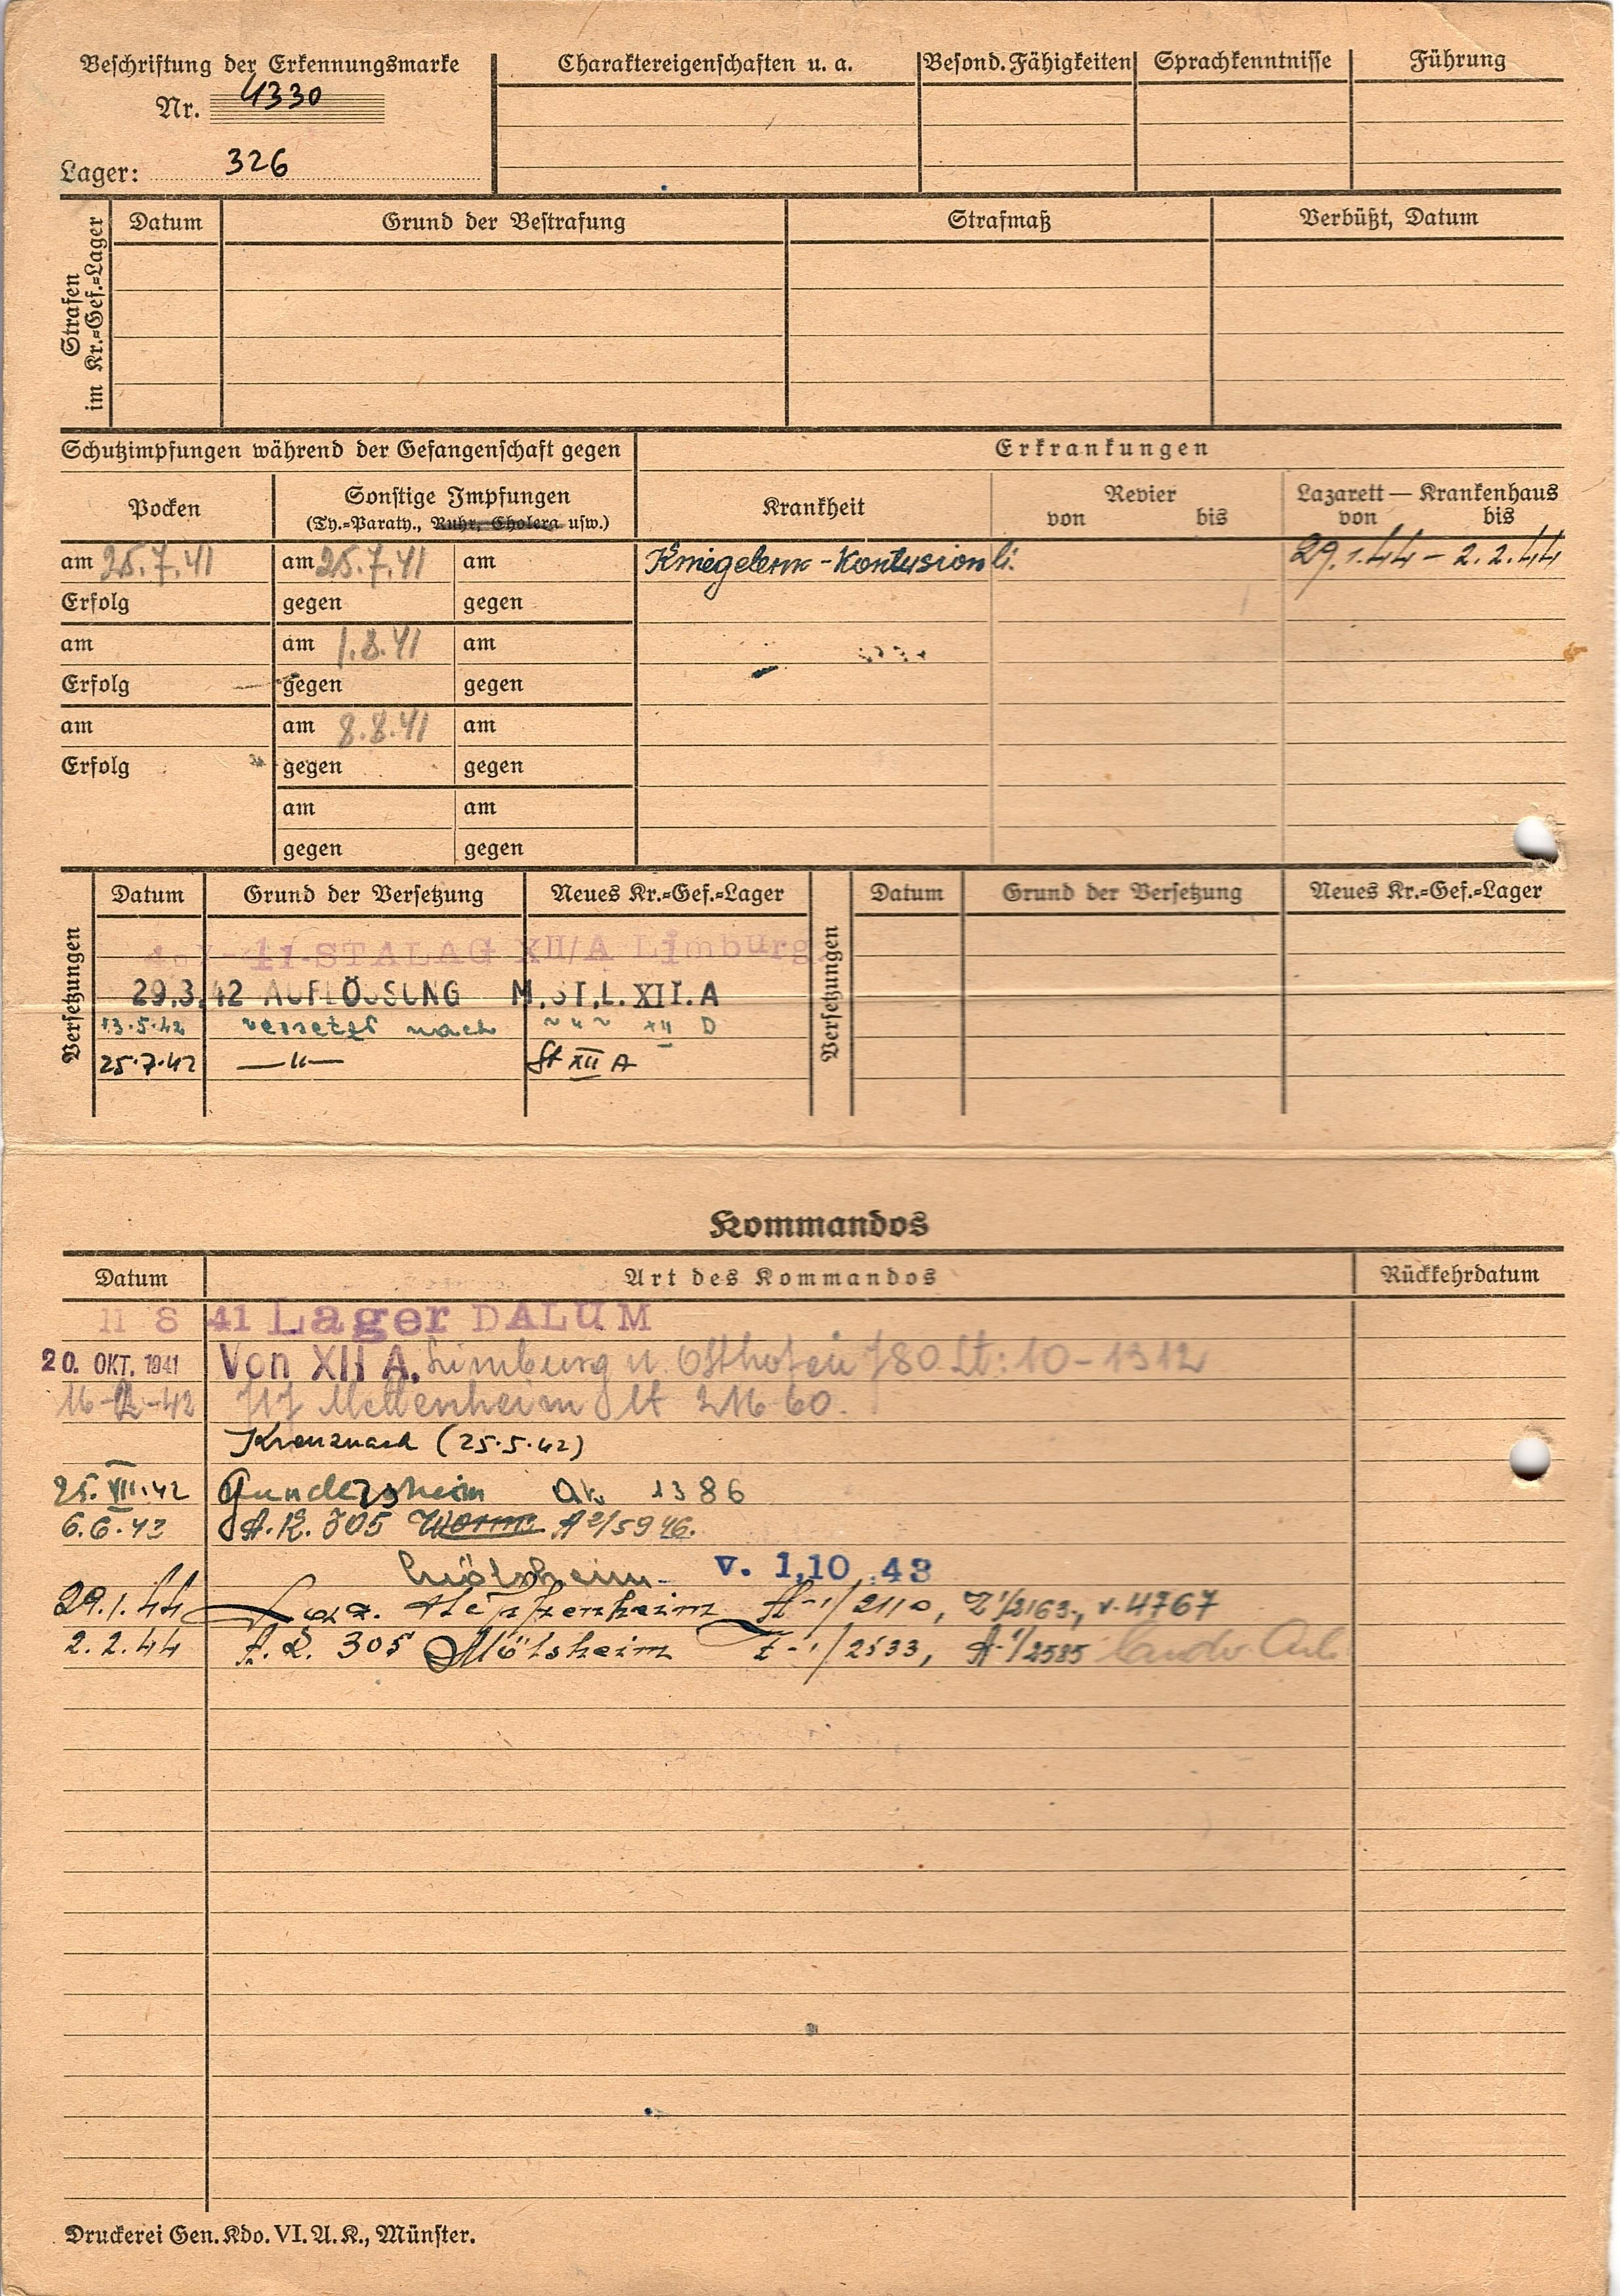 Beschriftung der Erkennungsmarke
Nr. 4330
Lager: 326
Charaktereigenschaften u. a.
Besond. Fähigkeiten
Sprachkenntnisse
Führung
Strafen im Kr.=Gef.=Lager
Datum
Grund der Bestrafung
Strafmaß
Verbüßt, Datum
Schutzimpfungen während der Gefangenschaft gegen
Erkrankungen
Pocken
Sonstige Impfungen
(Ty.=Paraty., Ruhr, Cholera usw.)
Krankheit
Revier
von bis
Lazarett — Krankenhaus
von bis
am 25.7.41 am 25.7.41 am Kniegelenk - Kontusion li. 29.1.44 – 2.2.44
Erfolg gegen gegen
am am 1.8.41 am
Erfolg gegen gegen
am am 8.8.41 am
Erfolg gegen gegen
am am
gegen gegen
Versetzungen
Datum Grund der Versetzung Neues Kr.=Gef.=Lager
Versetzungen
Datum Grund der Versetzung Neues Kr.=Gef.=Lager
41 STALAG XII/A Limburg
29.3.42 AUFLÖSUNG M.ST.L. XII.A
13.5.42 versetzt nach " " " XII D
25.7.42 —"— St XII A
Kommandos
Datum Art des Kommandos Rückkehrdatum
11 8 41 Lager DALUM
20. OKT. 1941 Von XII A. Limburg n. Osthofen 780 Lt: 10-1312
Mettenheim 2116 60.
Kreuznach (25.5.42)
25.VII.42 Gundersheim 1386
6.6.43 A.K. 305 Worms A 2/5946.
Mölsheim v. 1.10.43
29.1.44 Laz. Heppenheim A-1/2110, Z 1/2163, v. 4767
2.2.44 A.K. 305 Mölsheim Z-1/2533, A-1/2585
Druckerei Gen. Kdo. VI. A. K., Münster.